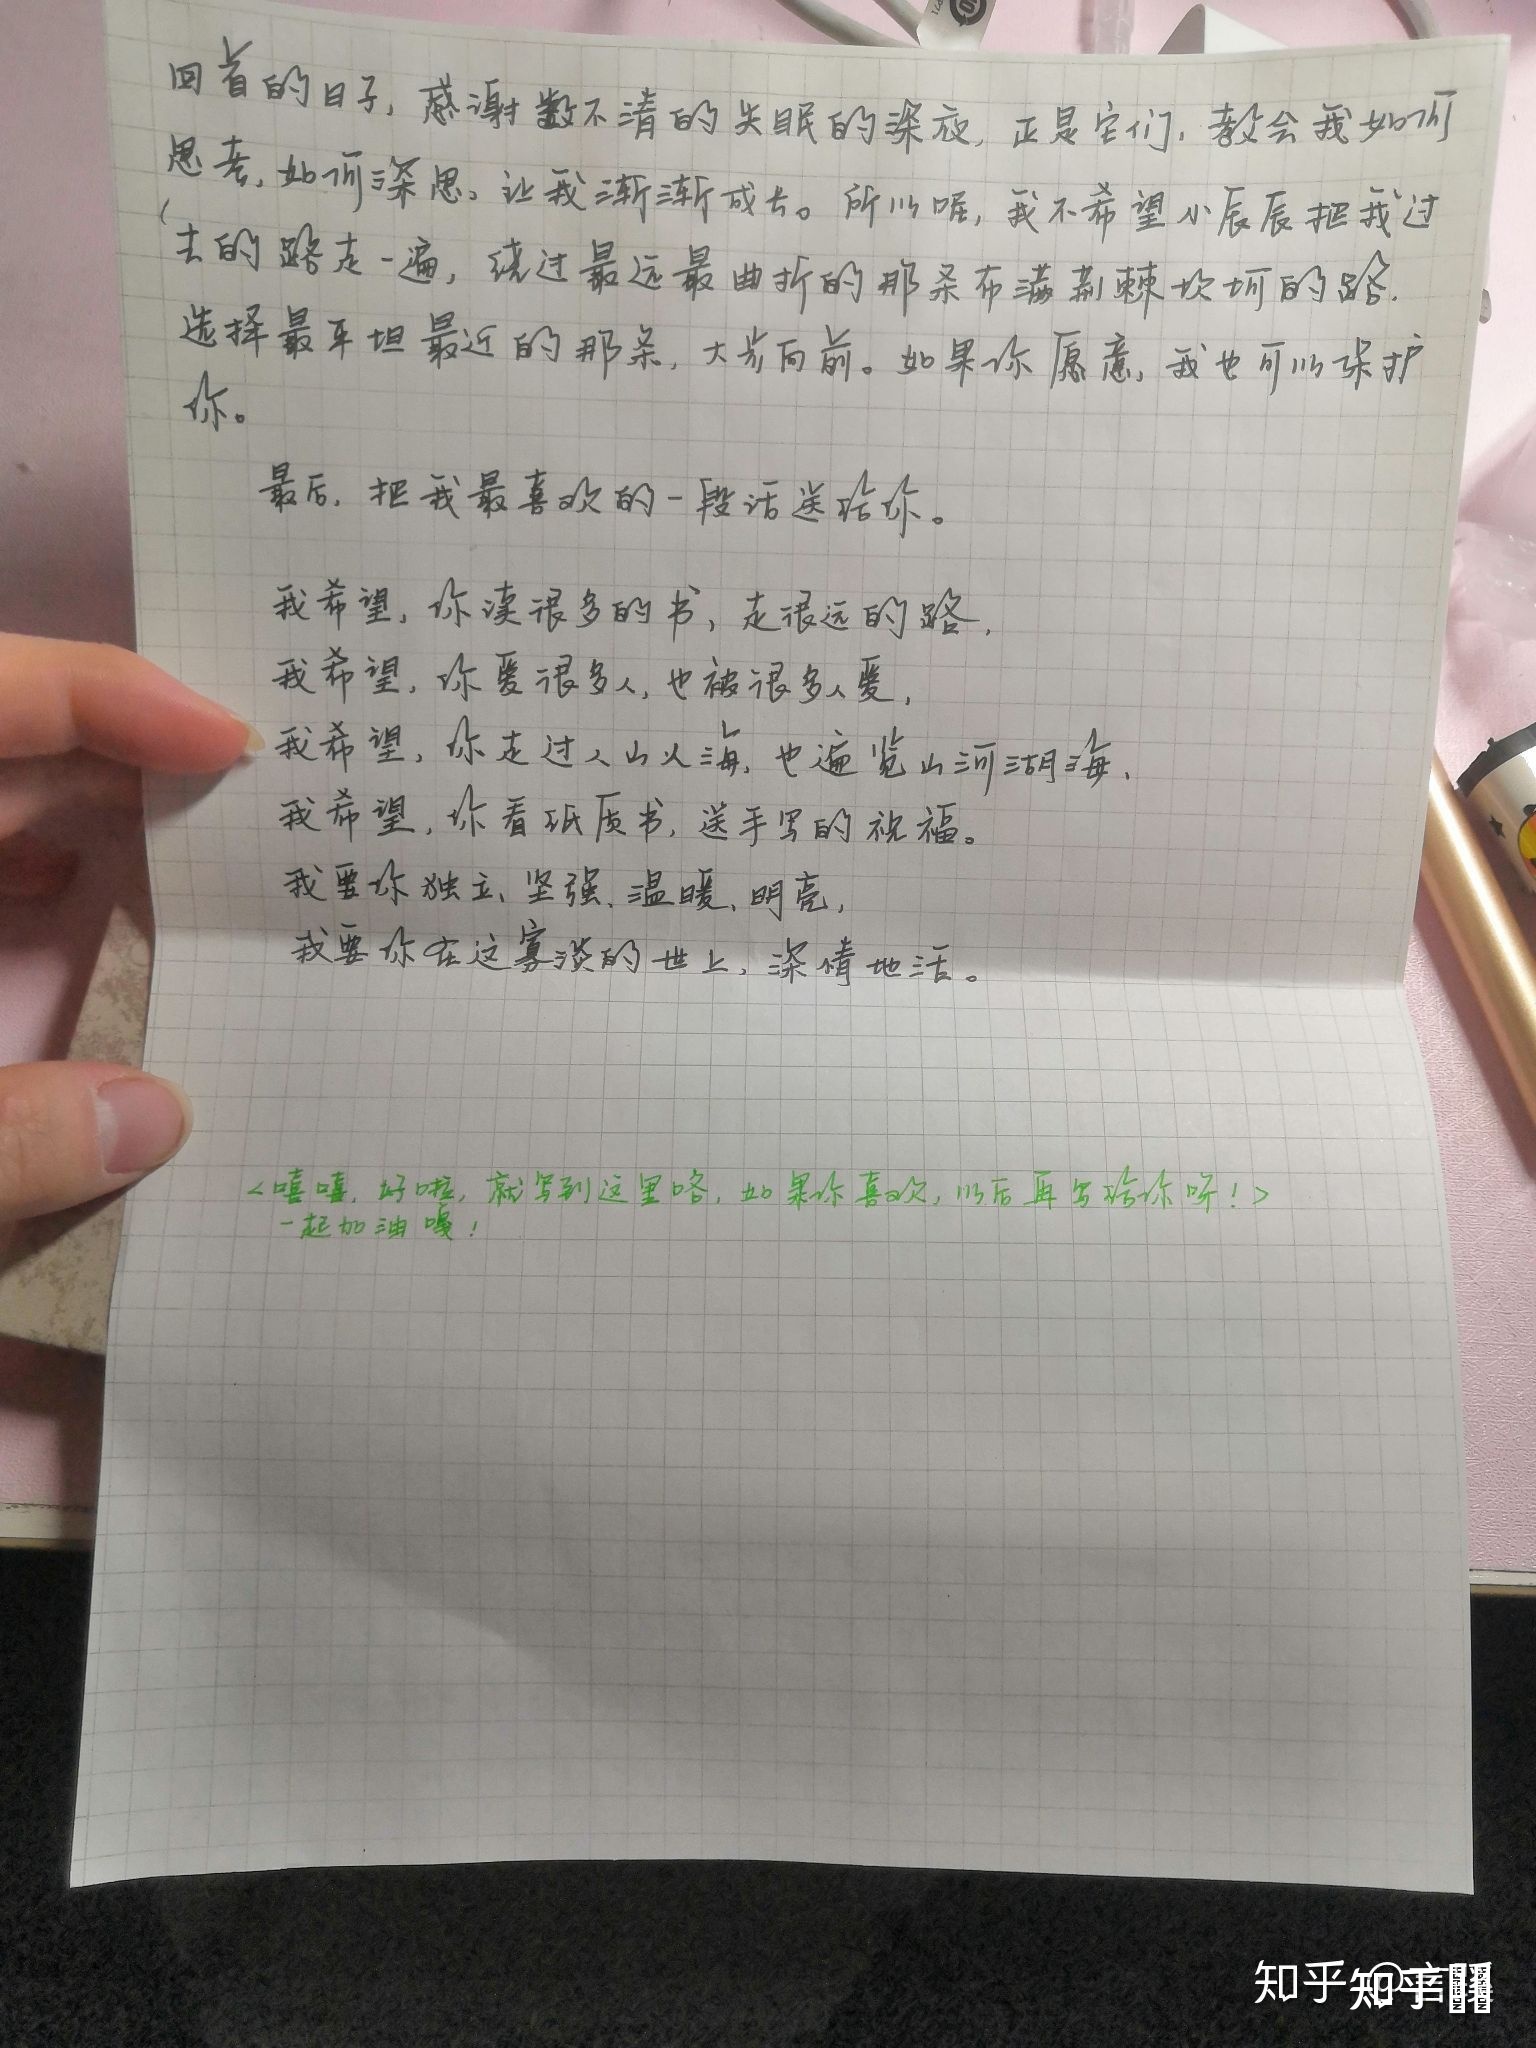 回首的日子，感谢数不清的失眠的深夜，正是它们，教会我如何
思考，如何深思。让我渐渐成长。所以喔，我不希望小辰辰把我过
去的路走一遍，绕过最远最曲折的那条布满荆棘坎坷的路，
选择最平坦最近的那条，大步向前。如果你愿意，我也可以保护
你。
最后，把我最喜欢的一段话送给你。
我希望，你读很多的书，走很远的路，
我希望，你爱很多人，也被很多人爱，
我希望，你走过人山人海，也遍览山河湖海，
我希望，你看纸质书，送手写的祝福。
我要你独立、坚强、温暖、明亮，
我要你在这寡淡的世上，深情地活。
<嘻嘻，好啦，就写到这里咯，如果你喜欢，以后再写给你呀！>
一起加油嘎！
知乎
知乎